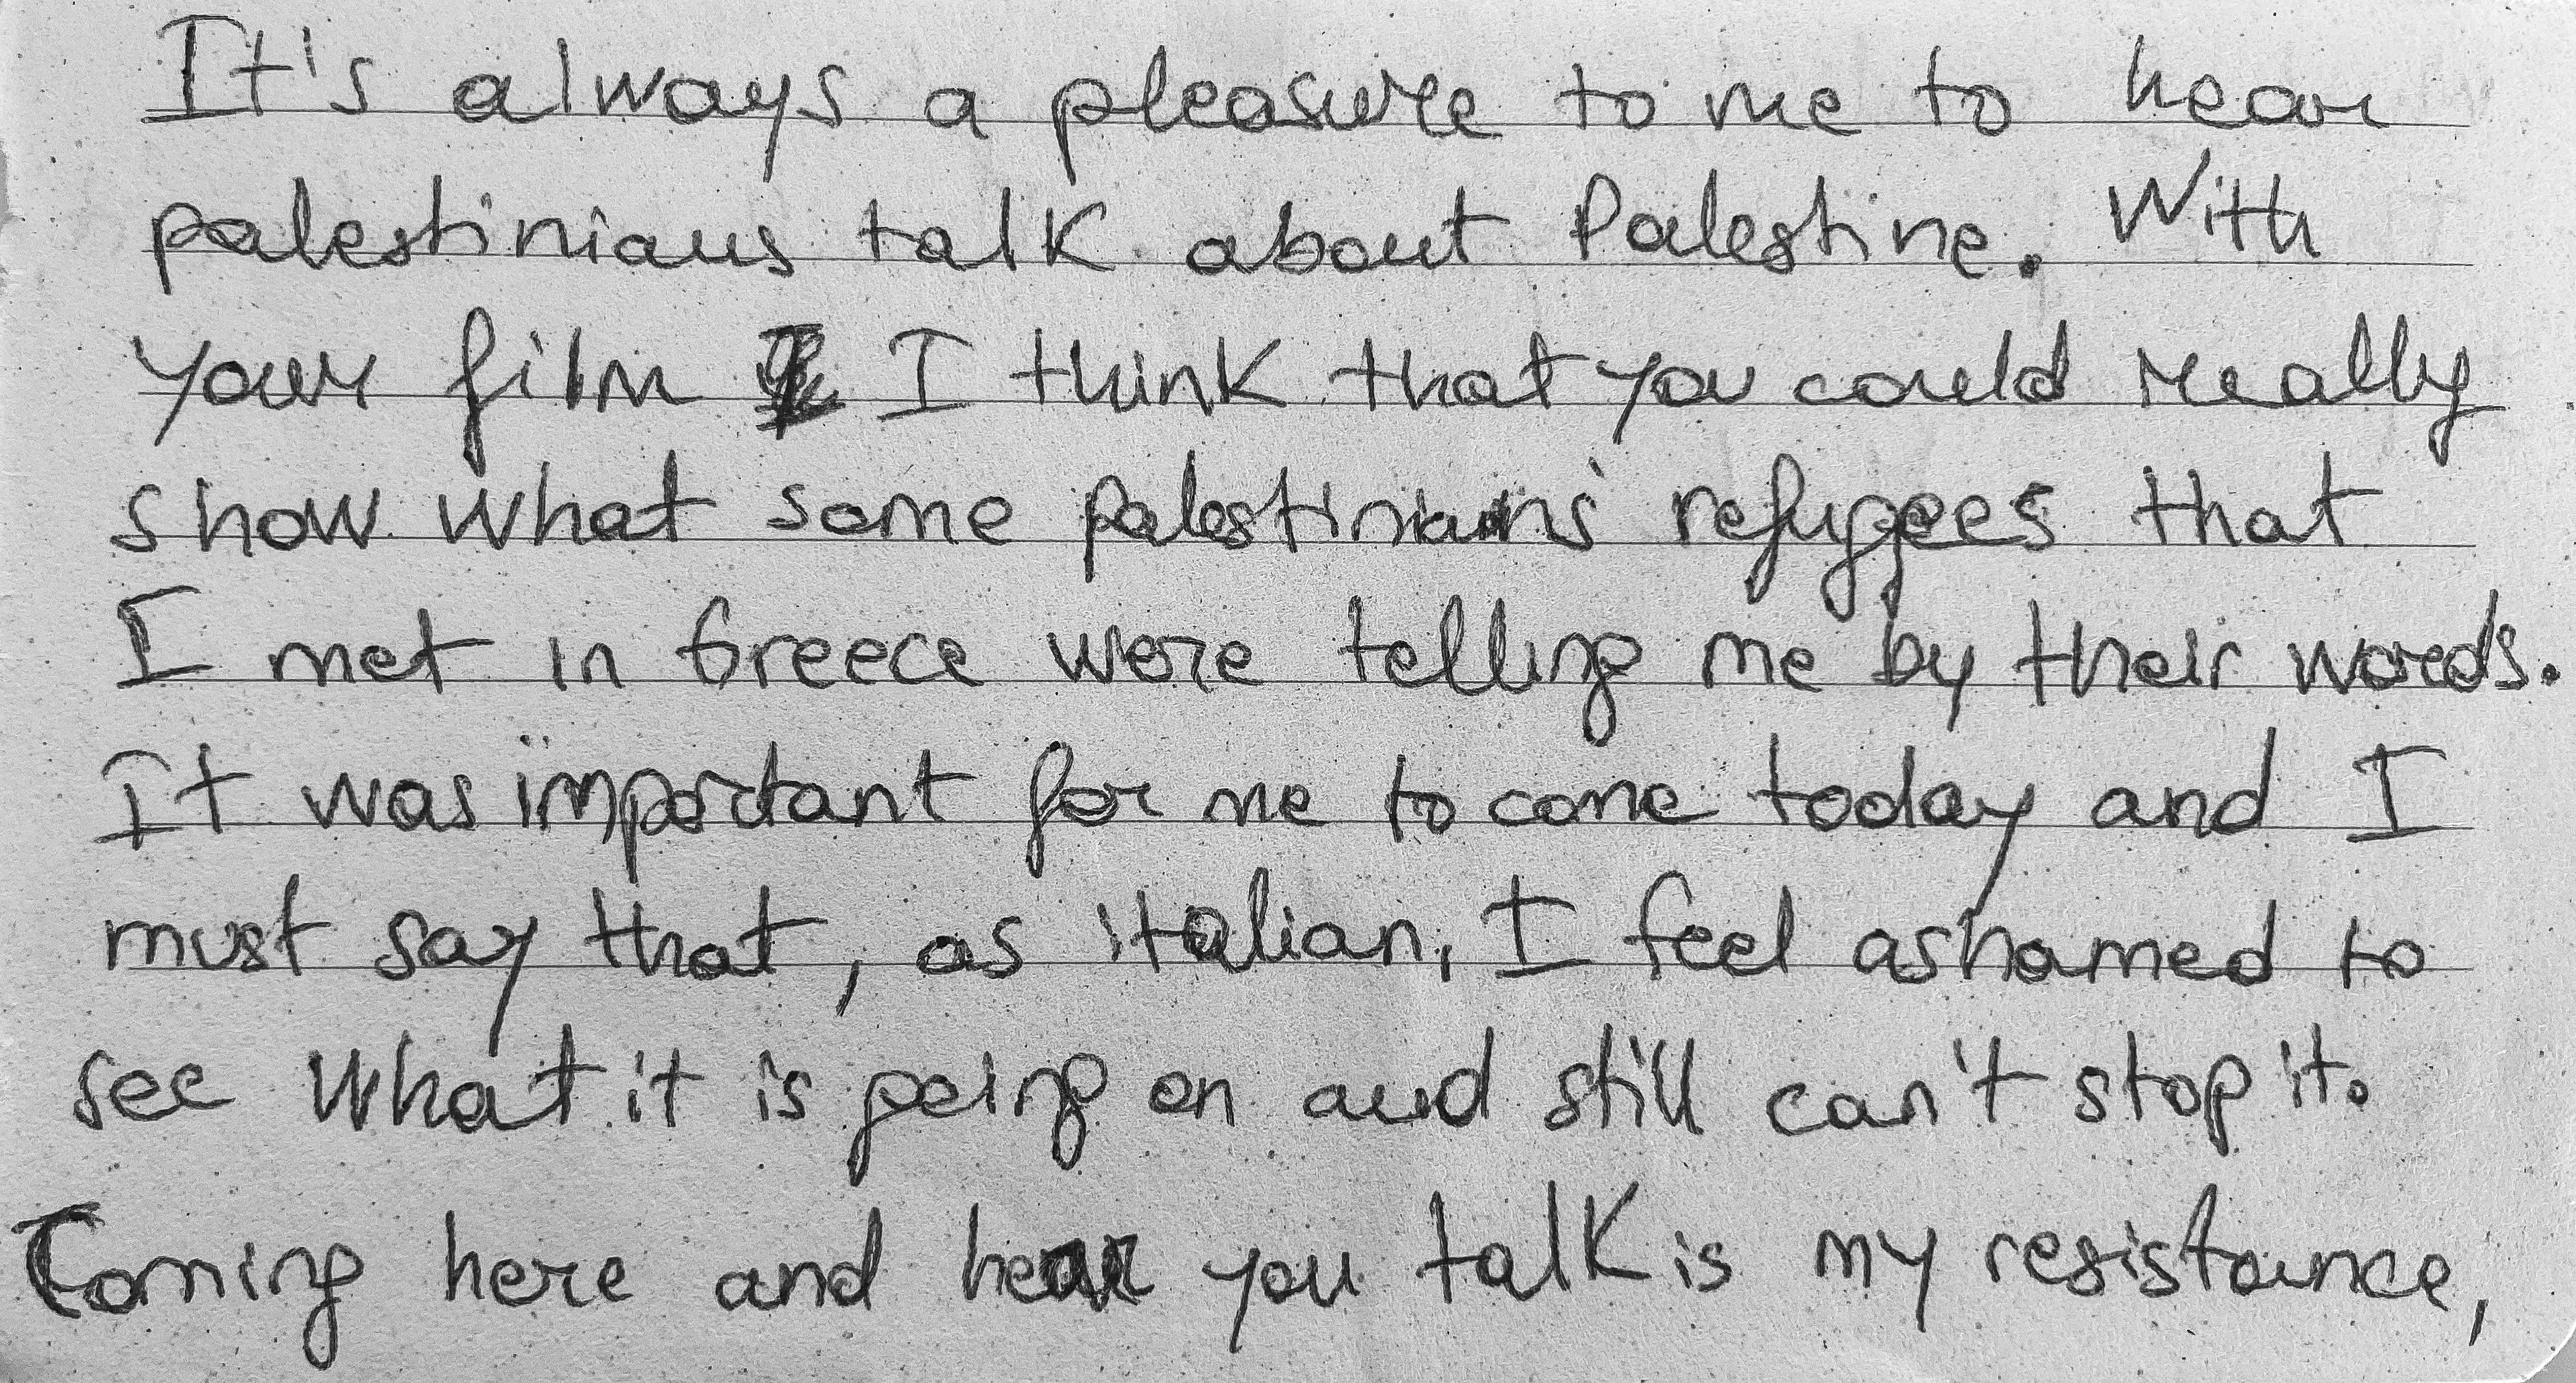 It's always a pleasure to me to hear
palestinians talk about Palestine. With
your film I think that you could really
show what some palestinians' refugees that
I met in Greece were telling me by their words.
It was important for me to come today and I
must say that, as italian, I feel ashamed to
see what it is going on and still can't stop it.
Coming here and hear you talk is my resistance,